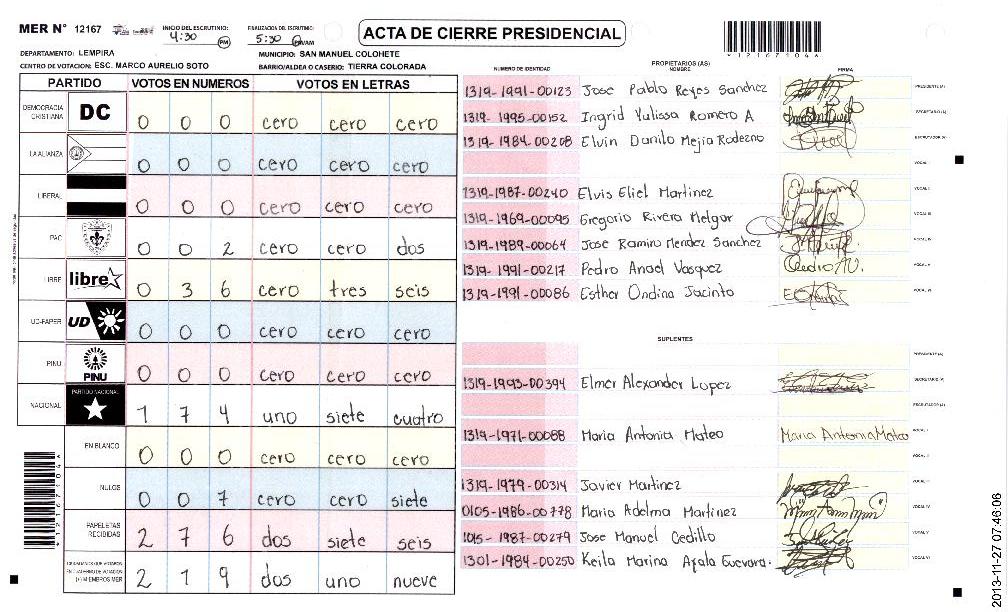 MER N° 12167
INICIO DEL ESCRUTINIO: 4:30 PM
FINALIZACION DEL ESCRUTINIO: 5:30 PM/AM
ACTA DE CIERRE PRESIDENCIAL
*12167104*
DEPARTAMENTO: LEMPIRA
MUNICIPIO: SAN MANUEL COLOHETE
CENTRO DE VOTACION: ESC. MARCO AURELIO SOTO
BARRIO/ALDEA O CASERIO: TIERRA COLORADA
PARTIDO VOTOS EN NUMEROS VOTOS EN LETRAS
DEMOCRACIA CRISTIANA DC 0 0 0 cero cero cero
LA ALIANZA 0 0 0 cero cero cero
LIBERAL 0 0 0 cero cero cero
PAC 0 0 2 cero cero dos
LIBRE libre 0 3 6 cero tres seis
UD-FAPER UD 0 0 0 cero cero cero
PINU PINU 0 0 0 cero cero cero
NACIONAL PARTIDO NACIONAL 1 7 4 uno siete cuatro
EN BLANCO 0 0 0 cero cero cero
NULOS 0 0 7 cero cero siete
PAPELETAS RECIBIDAS 2 7 6 dos siete seis
CIUDADANOS QUE VOTARON EN CUADERNO DE VOTACION (+) MIEMBROS MER 2 1 9 dos uno nueve
*12167104*
PROPIETARIOS (AS)
NUMERO DE IDENTIDAD NOMBRE FIRMA
1319-1991-00123 Jose Pablo Reyes Sanchez PRESIDENTE (A)
1319-1995-00152 Ingrid Yulissa Romero A SECRETARIO (A)
1319-1984-00208 Elvin Danilo Mejia Rodezno ESCRUTADOR (A)
VOCAL I
1319-1987-00240 Elvis Eliel Martinez VOCAL II
1319-1969-00095 Gregorio Rivera Melgar VOCAL III
1319-1989-00064 Jose Ramiro Mendez Sanchez VOCAL IV
1319-1991-00217 Pedro Anael Vasquez Pedro A.V. VOCAL V
1319-1991-00086 Esther Ondina Jacinto VOCAL VI
SUPLENTES
PRESIDENTE (A)
1319-1993-00394 Elmer Alexander Lopez SECRETARIO (A)
ESCRUTADOR (A)
1319-1971-00088 Maria Antonia Mateo Maria Antonia Mateo VOCAL I
VOCAL II
1319-1979-00314 Javier Martinez VOCAL III
0105-1986-00778 Maria Adelma Martinez VOCAL IV
1015-1987-00279 Jose Manuel Cedillo VOCAL V
1301-1984-00250 Keila Marina Ayala Guevara. VOCAL VI
2013-11-27 07:46:06